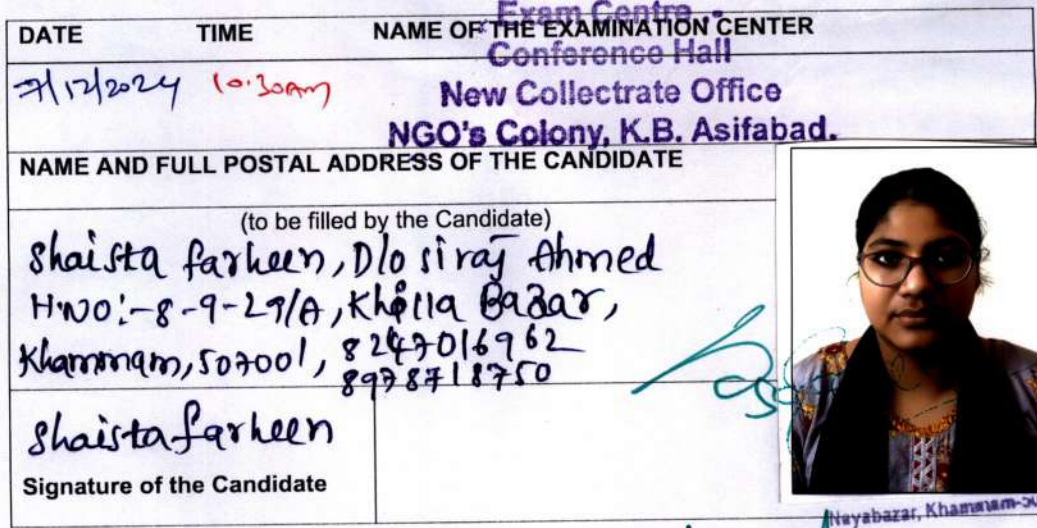 Exam Centre :-
DATE TIME NAME OF THE EXAMINATION CENTER
7/12/2024 10.30am
Conference Hall
New Collectrate Office
NGO's Colony, K.B. Asifabad.
NAME AND FULL POSTAL ADDRESS OF THE CANDIDATE
(to be filled by the Candidate)
Shaista farheen, D/o siraj Ahmed
H.NO:-8-9-29/A, Khilla Bazar,
Khammam, 507001, 8247016962
8978718750
Shaista farheen
Signature of the Candidate
Nayabazar, Khammam-50